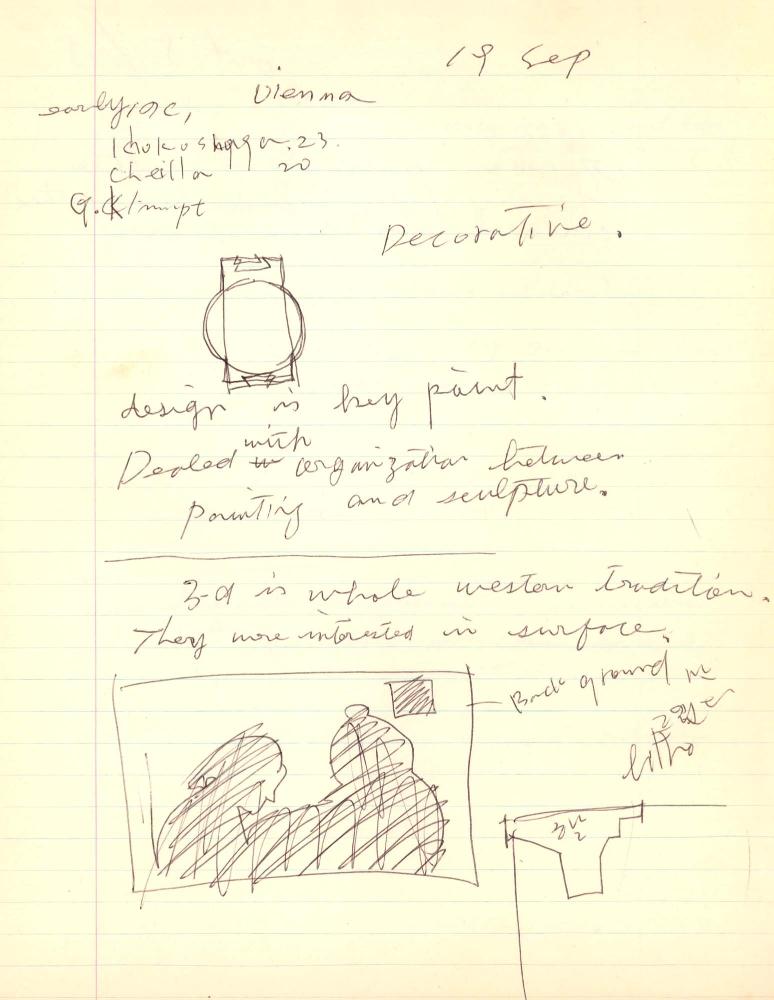 19 Sep
Vienna
early 19c,
Khokoshqqa. 23.
Cheilla 20
G. Klimpt
Decorative.
design is key paint.
Dealed with organization between
painting and sculpture.
3-d is whole western tradition.
They more interested in surface.
Back ground is
litho
3 1/2